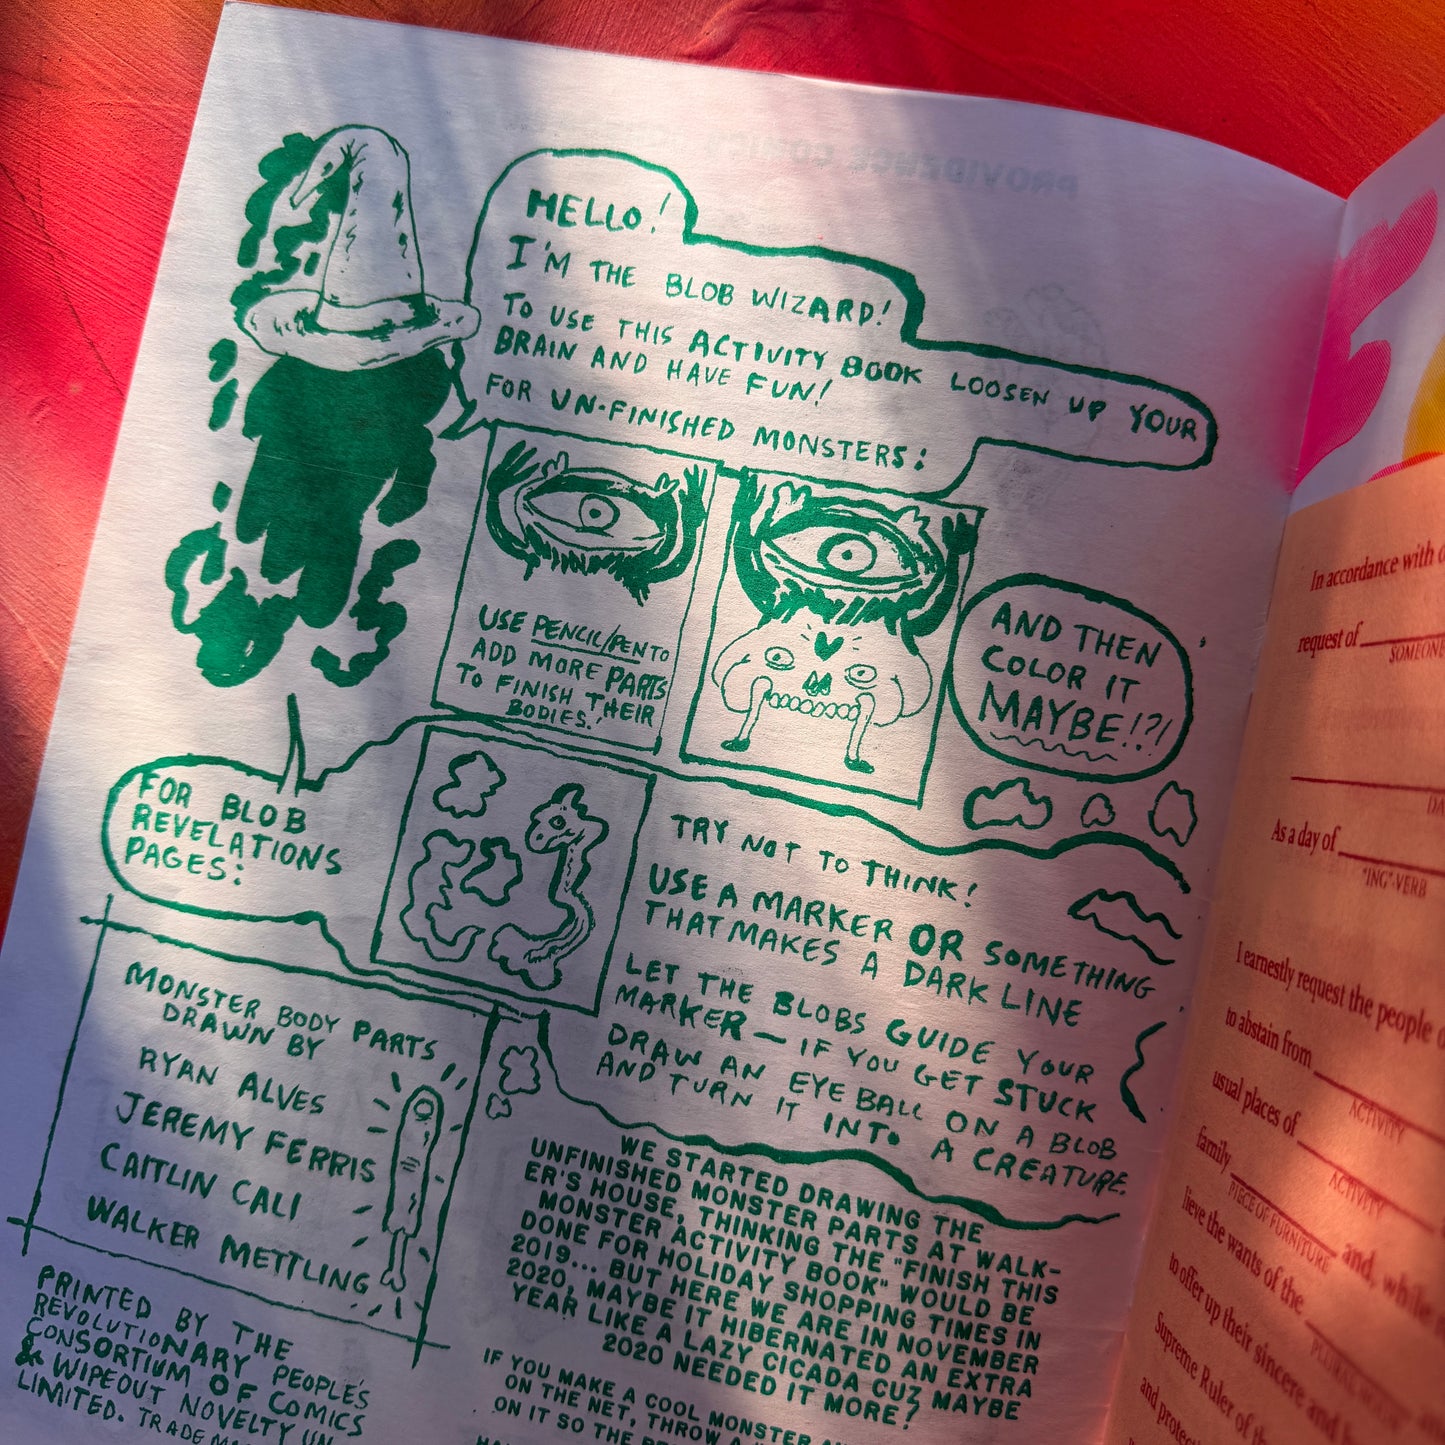 HELLO!
I'M THE BLOB WIZARD!
TO USE THIS ACTIVITY BOOK LOOSEN UP YOUR
BRAIN AND HAVE FUN!
FOR UN-FINISHED MONSTERS:
USE PENCIL/PEN TO
ADD MORE PARTS
TO FINISH THEIR
BODIES!
AND THEN
COLOR IT
MAYBE!?!
FOR BLOB
REVELATIONS
PAGES:
TRY NOT TO THINK!
USE A MARKER OR SOMETHING
THAT MAKES A DARK LINE
LET THE BLOBS GUIDE YOUR
MARKER — IF YOU GET STUCK
DRAW AN EYEBALL ON A BLOB
AND TURN IT INTO A CREATURE.
MONSTER BODY PARTS
DRAWN BY
RYAN ALVES
JEREMY FERRIS
CAITLIN CALI
WALKER METTLING
PRINTED BY THE
REVOLUTIONARY PEOPLE'S
CONSORTIUM OF COMICS
& WIPEOUT NOVELTY UN
LIMITED.
WE STARTED DRAWING THE
UNFINISHED MONSTER PARTS AT WALK-
ER'S HOUSE, THINKING THE "FINISH THIS
MONSTER ACTIVITY BOOK" WOULD BE
DONE FOR HOLIDAY SHOPPING TIMES IN
2019... BUT HERE WE ARE IN NOVEMBER
2020, MAYBE IT HIBERNATED AN EXTRA
YEAR LIKE A LAZY CICADA CUZ MAYBE
2020 NEEDED IT MORE?
IF YOU MAKE A COOL MONSTER
ON THE NET, THROW A
ON IT SO THE
PROVIDENCE COMICS
In accordance with
request of
SOMEONE
As a day of
"ING"-VERB
I earnestly request the people
to abstain from
ACTIVITY
usual places of
ACTIVITY
family
PIECE OF FURNITURE
and, while
lieve the wants of the
PLURAL NOUN
to offer up their sincere and
Supreme Ruler of
and